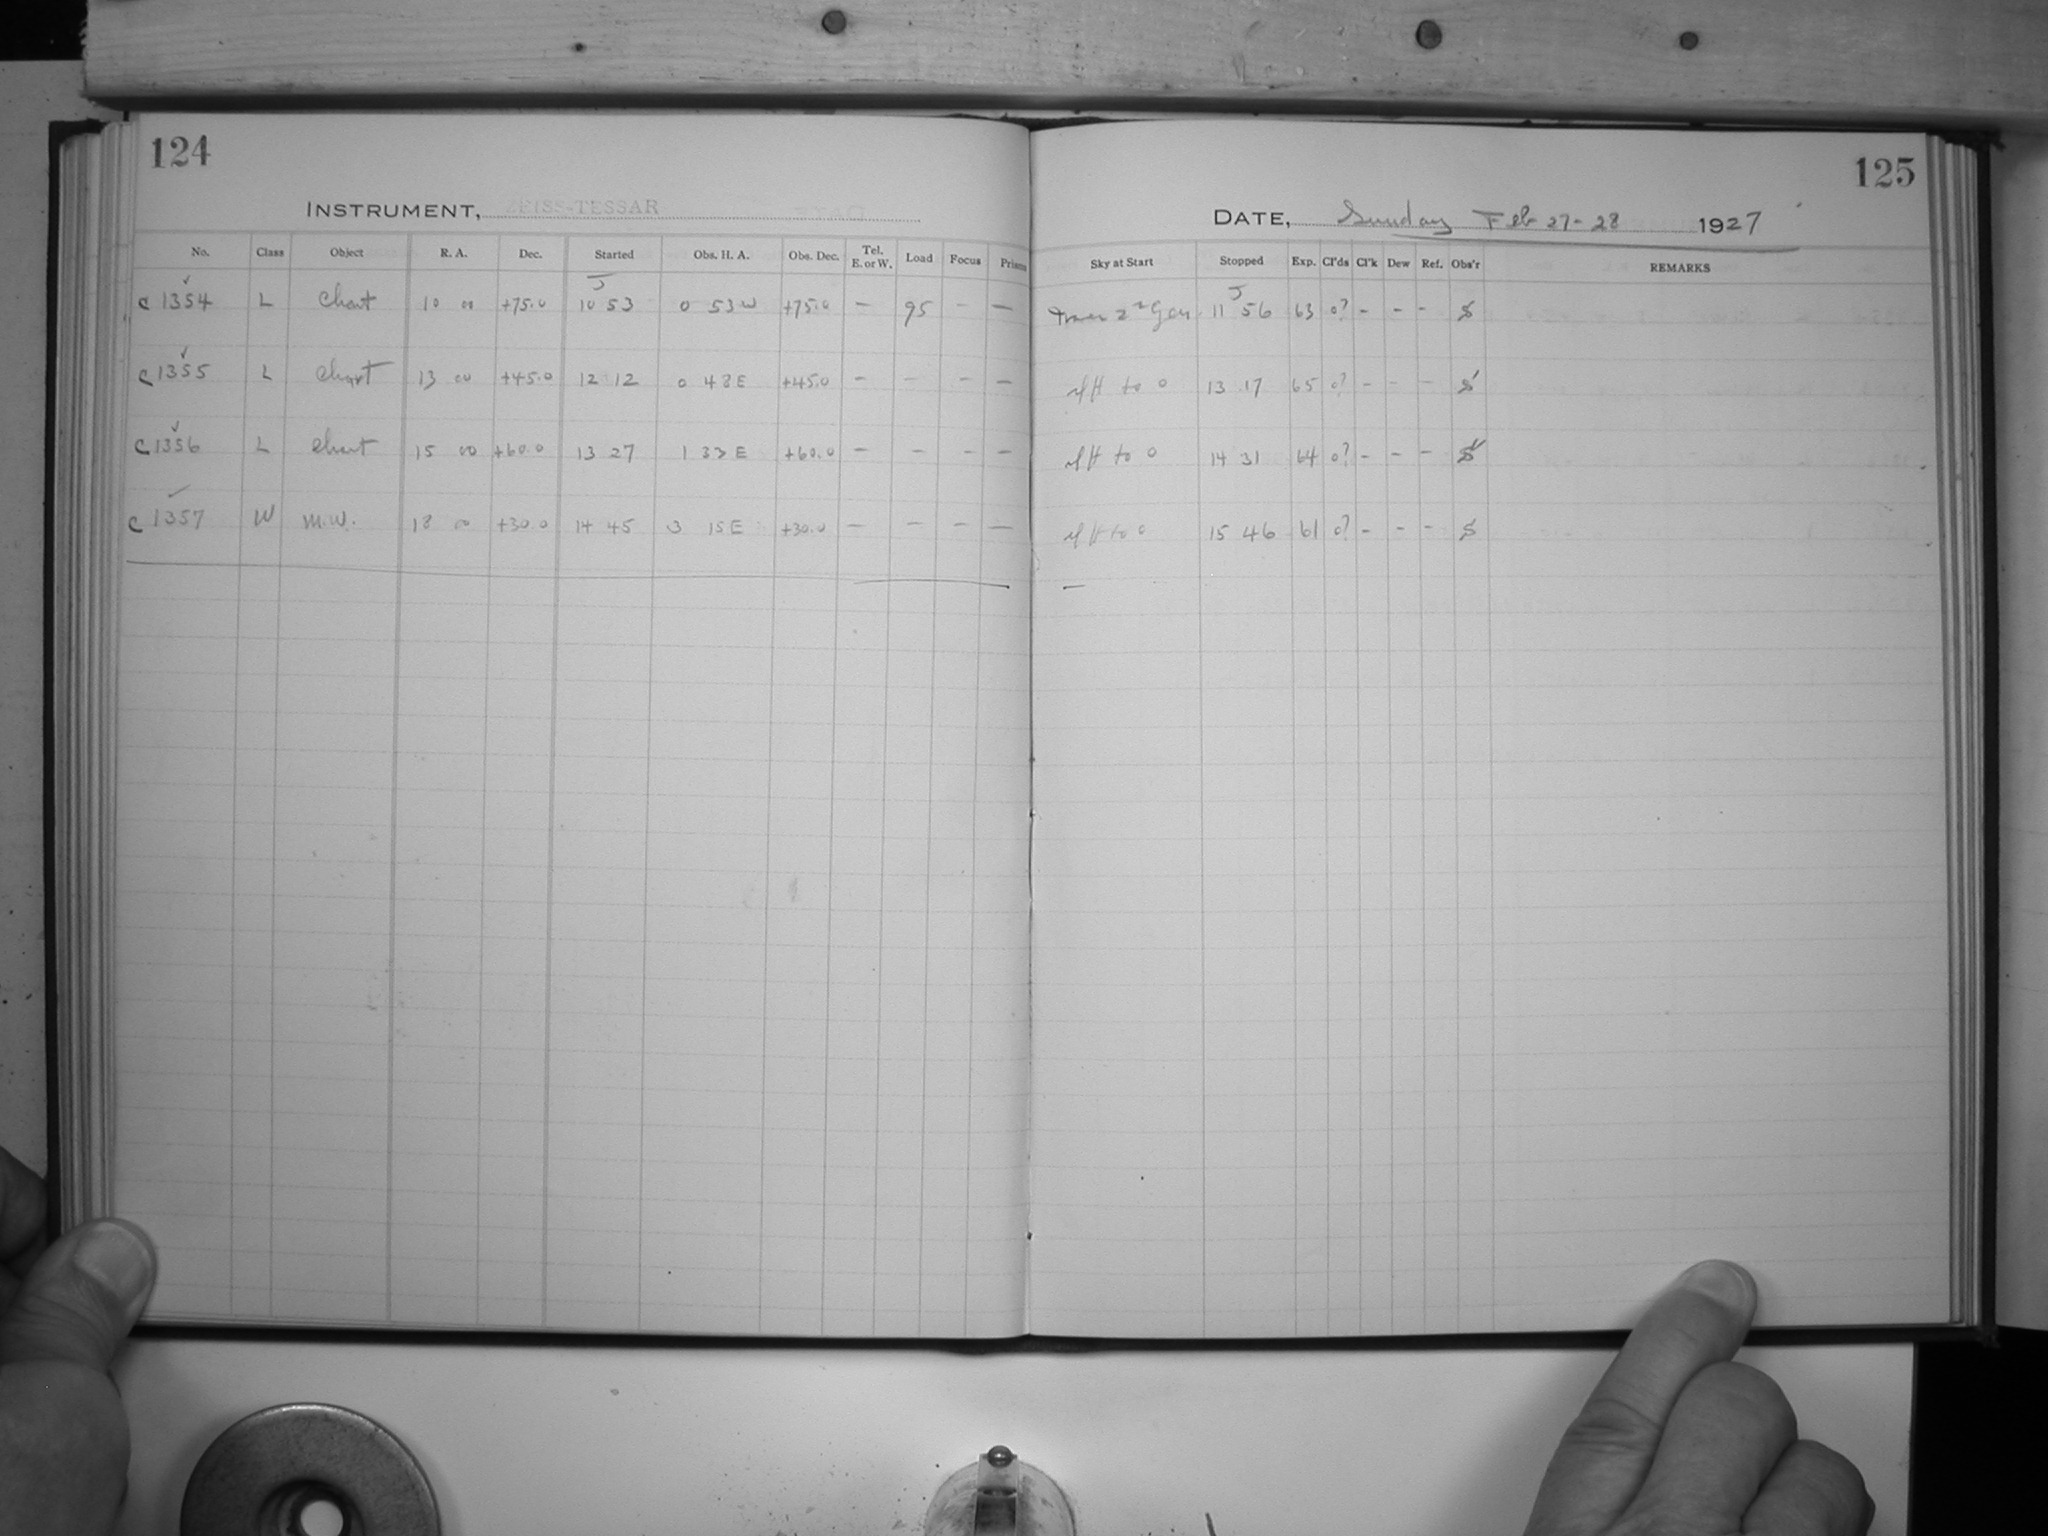 124
INSTRUMENT, ZEISS-TESSAR
No. Class Object R. A. Dec. Started Obs. H. A. Obs. Dec. Tel. E. or W. Load Focus Prisms
C 1354 L Chart 10 00 +75.0 10 53 0 53 W +75.0 — 95 - —
C 1355 L Chart 13 00 +45.0 12 12 0 48 E +45.0 — - - —
C 1356 L Chart 15 00 +60.0 13 27 1 33 E +60.0 — - - —
C 1357 W M.W. 18 00 +30.0 14 45 3 15 E +30.0 — - - —
125
DATE, Sunday Feb 27-28 1927
Sky at Start Stopped Exp. Cl'ds Cl'k Dew Ref. Obs'r REMARKS
11 56 63 0? - - - S
to 0 13 17 65 0? - - - S
to 0 14 31 64 0? - - - S
to 0 15 46 61 0? - - - S